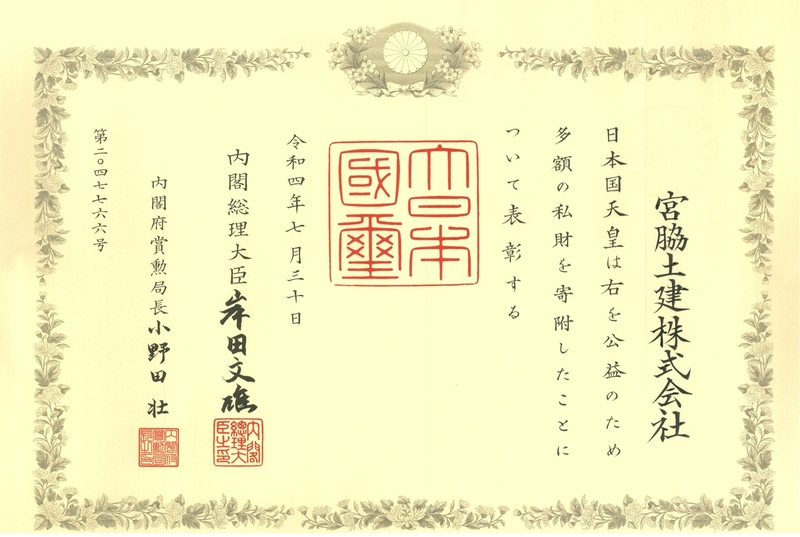 宮脇土建株式会社
日本国天皇は右を公益のため
多額の私財を寄附したことに
ついて表彰する
大日本
國璽
令和四年七月三十日
内閣総理大臣岸田文雄
内閣総理大臣之印
内閣府賞勲局長小野田壮
第二〇四七七六六号